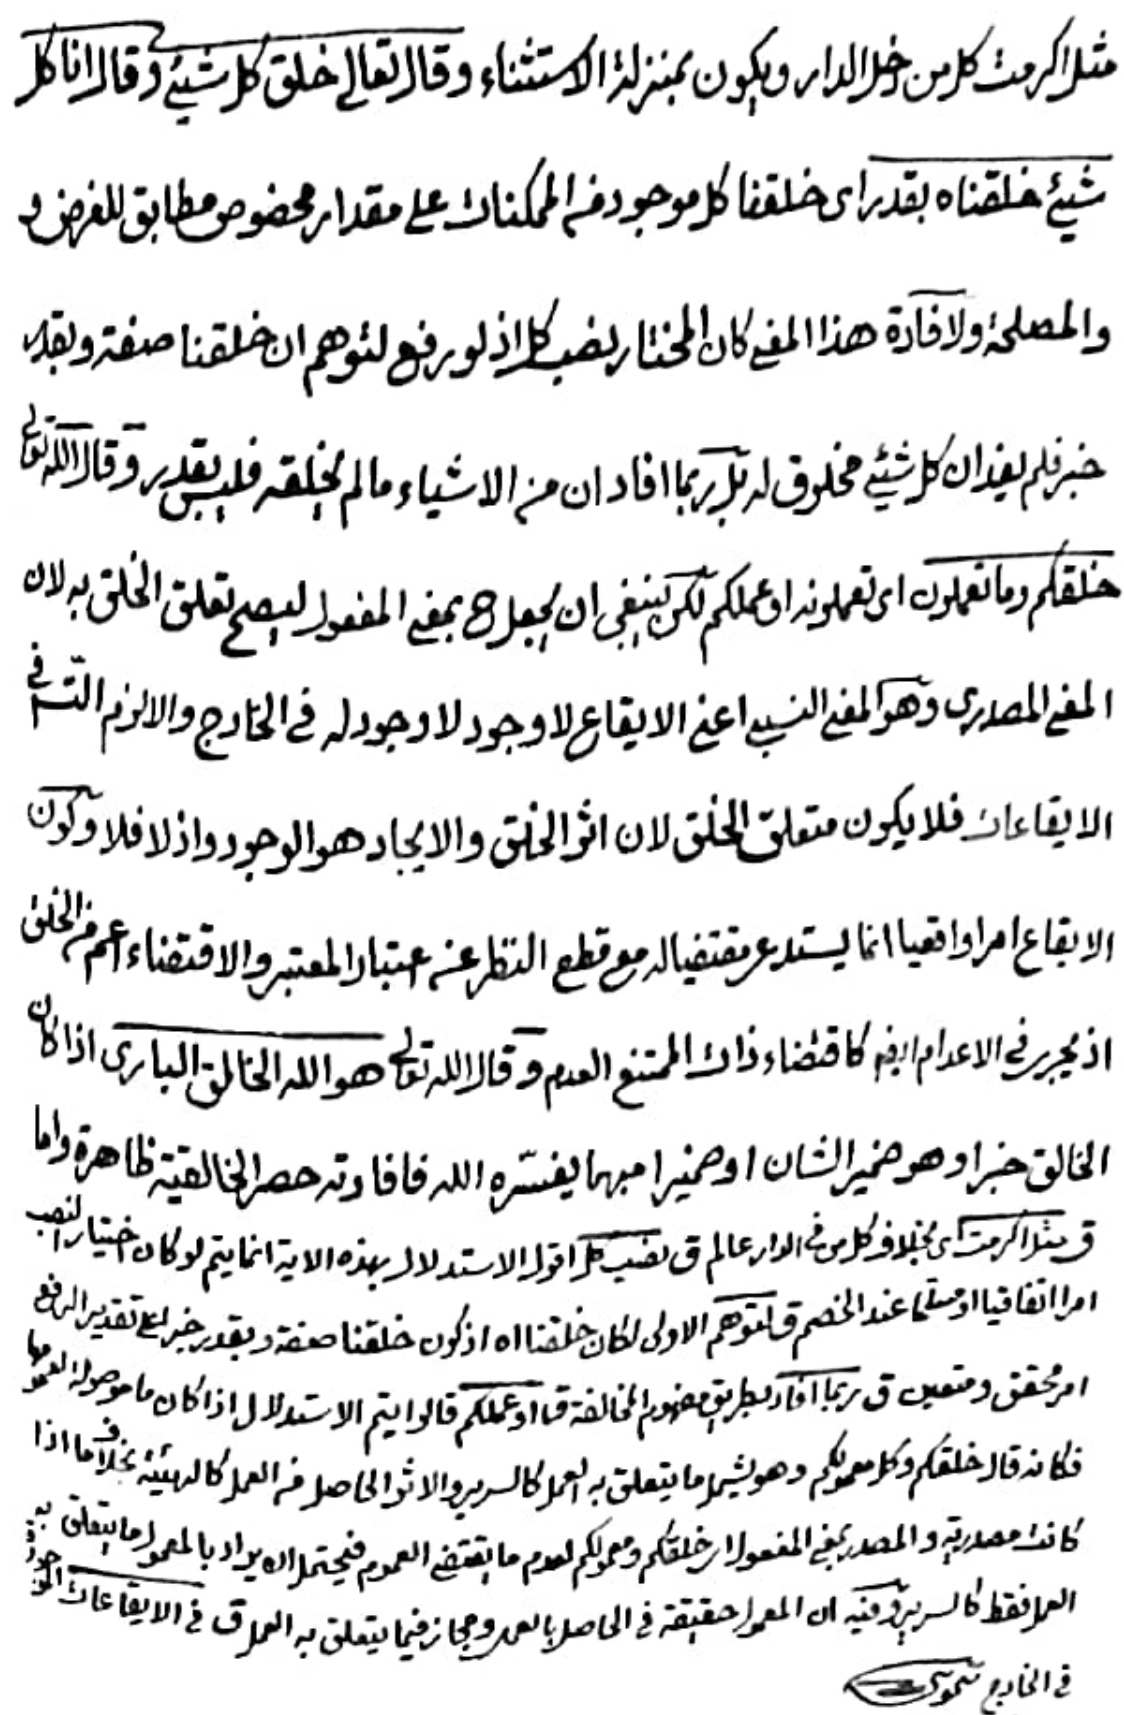 مثل اكرمت كل من دخل الدار ويكون بمنزلة الاستثناء وقال تعالى خلق كل شيئ وقال انا كل
شيئ خلقناه بقدر اى خلقنا كل موجود من الممكنات على مقدار مخصوص مطابق للغرض و
والمصلحة ولافادة هذا المعنى كان المختار نصب كل اذ لو رفع لتوهم ان خلقنا صفة وبقدر
خبر فلم يفد ان كل شيئ مخلوق له بل ربما افاد ان من الاشياء ما لم يخلقه فليس بقدر وقال الله تعالى
خلقكم وما تعملون اى تعملونه او عملكم لكن ينبغى ان يجعل ح بمعنى المفعول ليصح تعلق الخلق به لان
المعنى المصدرى وهو المعنى النسبى اعنى الايقاع لا وجود لا وجود له فى الخارج والا لزم التس فى
الايقاعات فلا يكون متعلق الخلق لان اثر الخلق والايجاد هو الوجود واذ لا فلا وكون
الايقاع امرا واقعيا انما يستدعى مقتضيا له مع قطع النظر عن اعتبار المعتبر والاقتضاء اعم من الخلق
اذ يجرى فى الاعدام ايضا كاقتضاء ذات الممتنع العدم وقال الله تعالى هو الله الخالق البارى اذا كان
الخالق خبرا وهو ضمير الشان او ضميرا مبهما يفسّره الله فافادته حصر الخالقية ظاهرة واما
ق مثل اكرمت اى بخلاف كل من فى الدار عالم ق نصب كل اقول الاستدلال بهذه الاية انما يتم لو كان اختيار النصب
امرا اتفاقيا او مسلما عند الخصم ق لتوهم الاولى لكان خلقنا اه اذ كون خلقنا صفة وبقدر خبرا على تقدير الرفع
امر محقق ومتعين ق ربما افاد بطريق مفهوم المخالفة ق او عملكم قالوا يتم الاستدلال اذا كان ما موصولة لعمومها
فكانه قال خلقكم وكل معمولكم وهو يشمل ما يتعلق به العمل كالسرير والاثر الحاصل من العمل كالهيئة بخلاف ما اذا
كانت مصدرية والمصدر بمعنى المفعول اى خلقكم ومعمولكم لعدم ما يقتضى العموم فيحتمل ان يراد بالمعمول ما يتعلق به
العمل فقط كالسرير وفيه ان المعمول حقيقة فى الحاصل بالعمل ومجاز فيما يتعلق به العمل ق فى الايقاعات الموجودة
فى الخارج